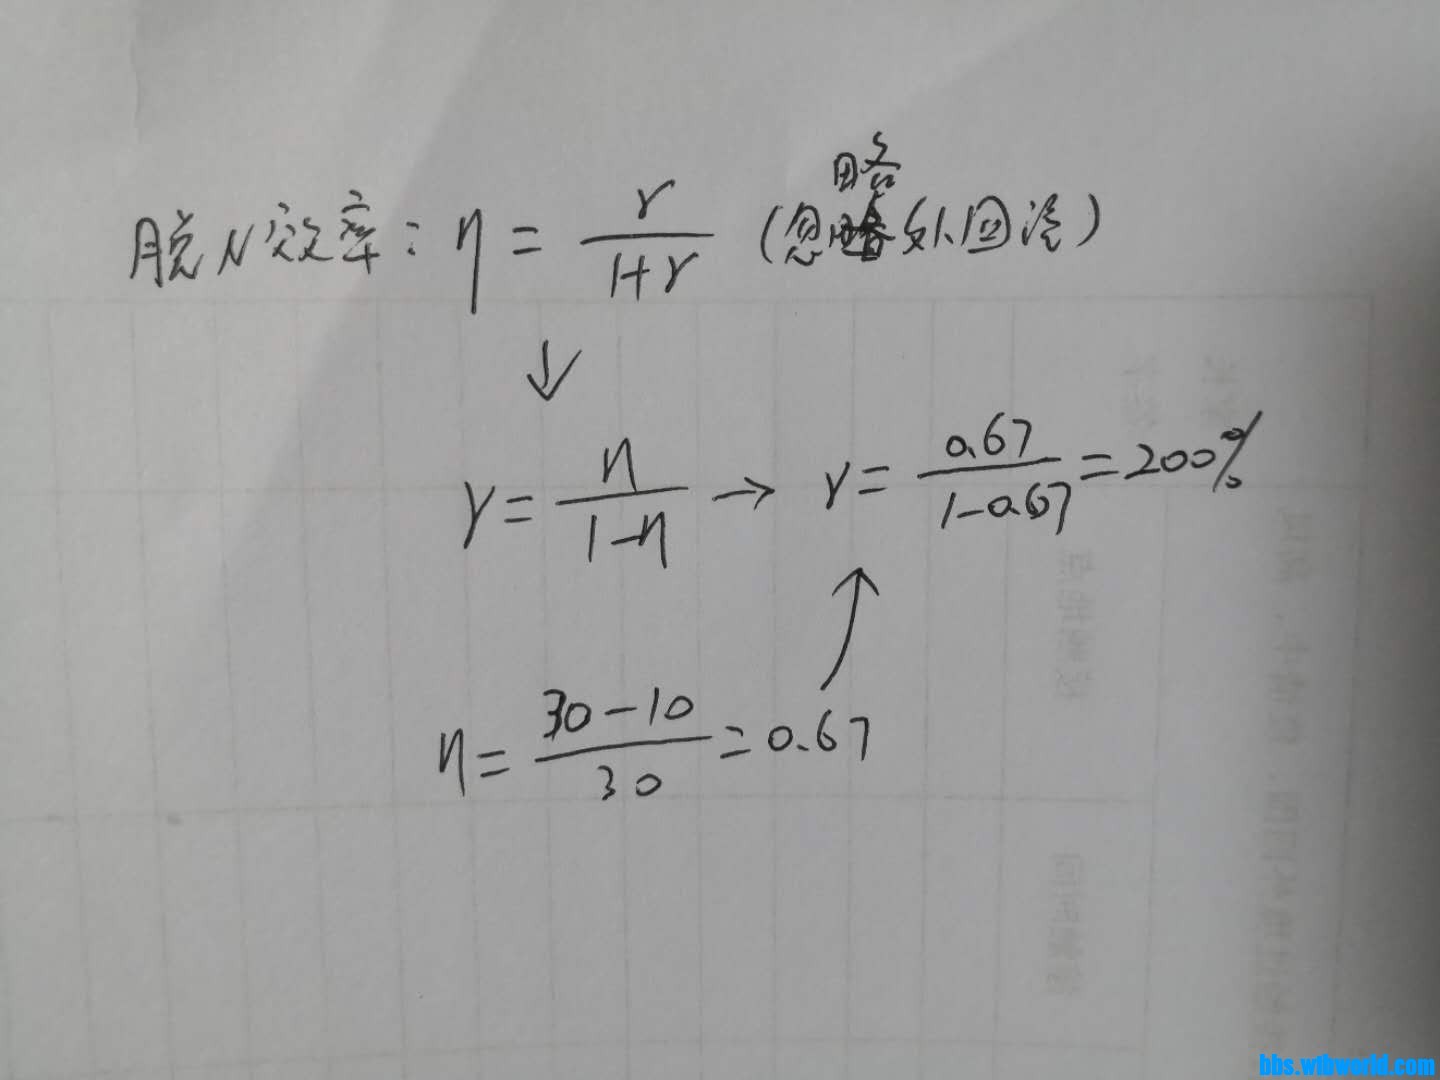 脱N效率：η = r/(1+r) (忽略外回流)
↓
r = η/(1-η) → r = 0.67/(1-0.67) = 200%
η = (30-10)/30 = 0.67
bbs.wtbworld.com